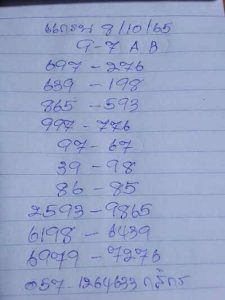 8/10/65
9-7 A B
697-276
639-198
865-593
997-776
97-67
39-98
86-85
2593-9865
6198-6439
6979-7276
057-1264633